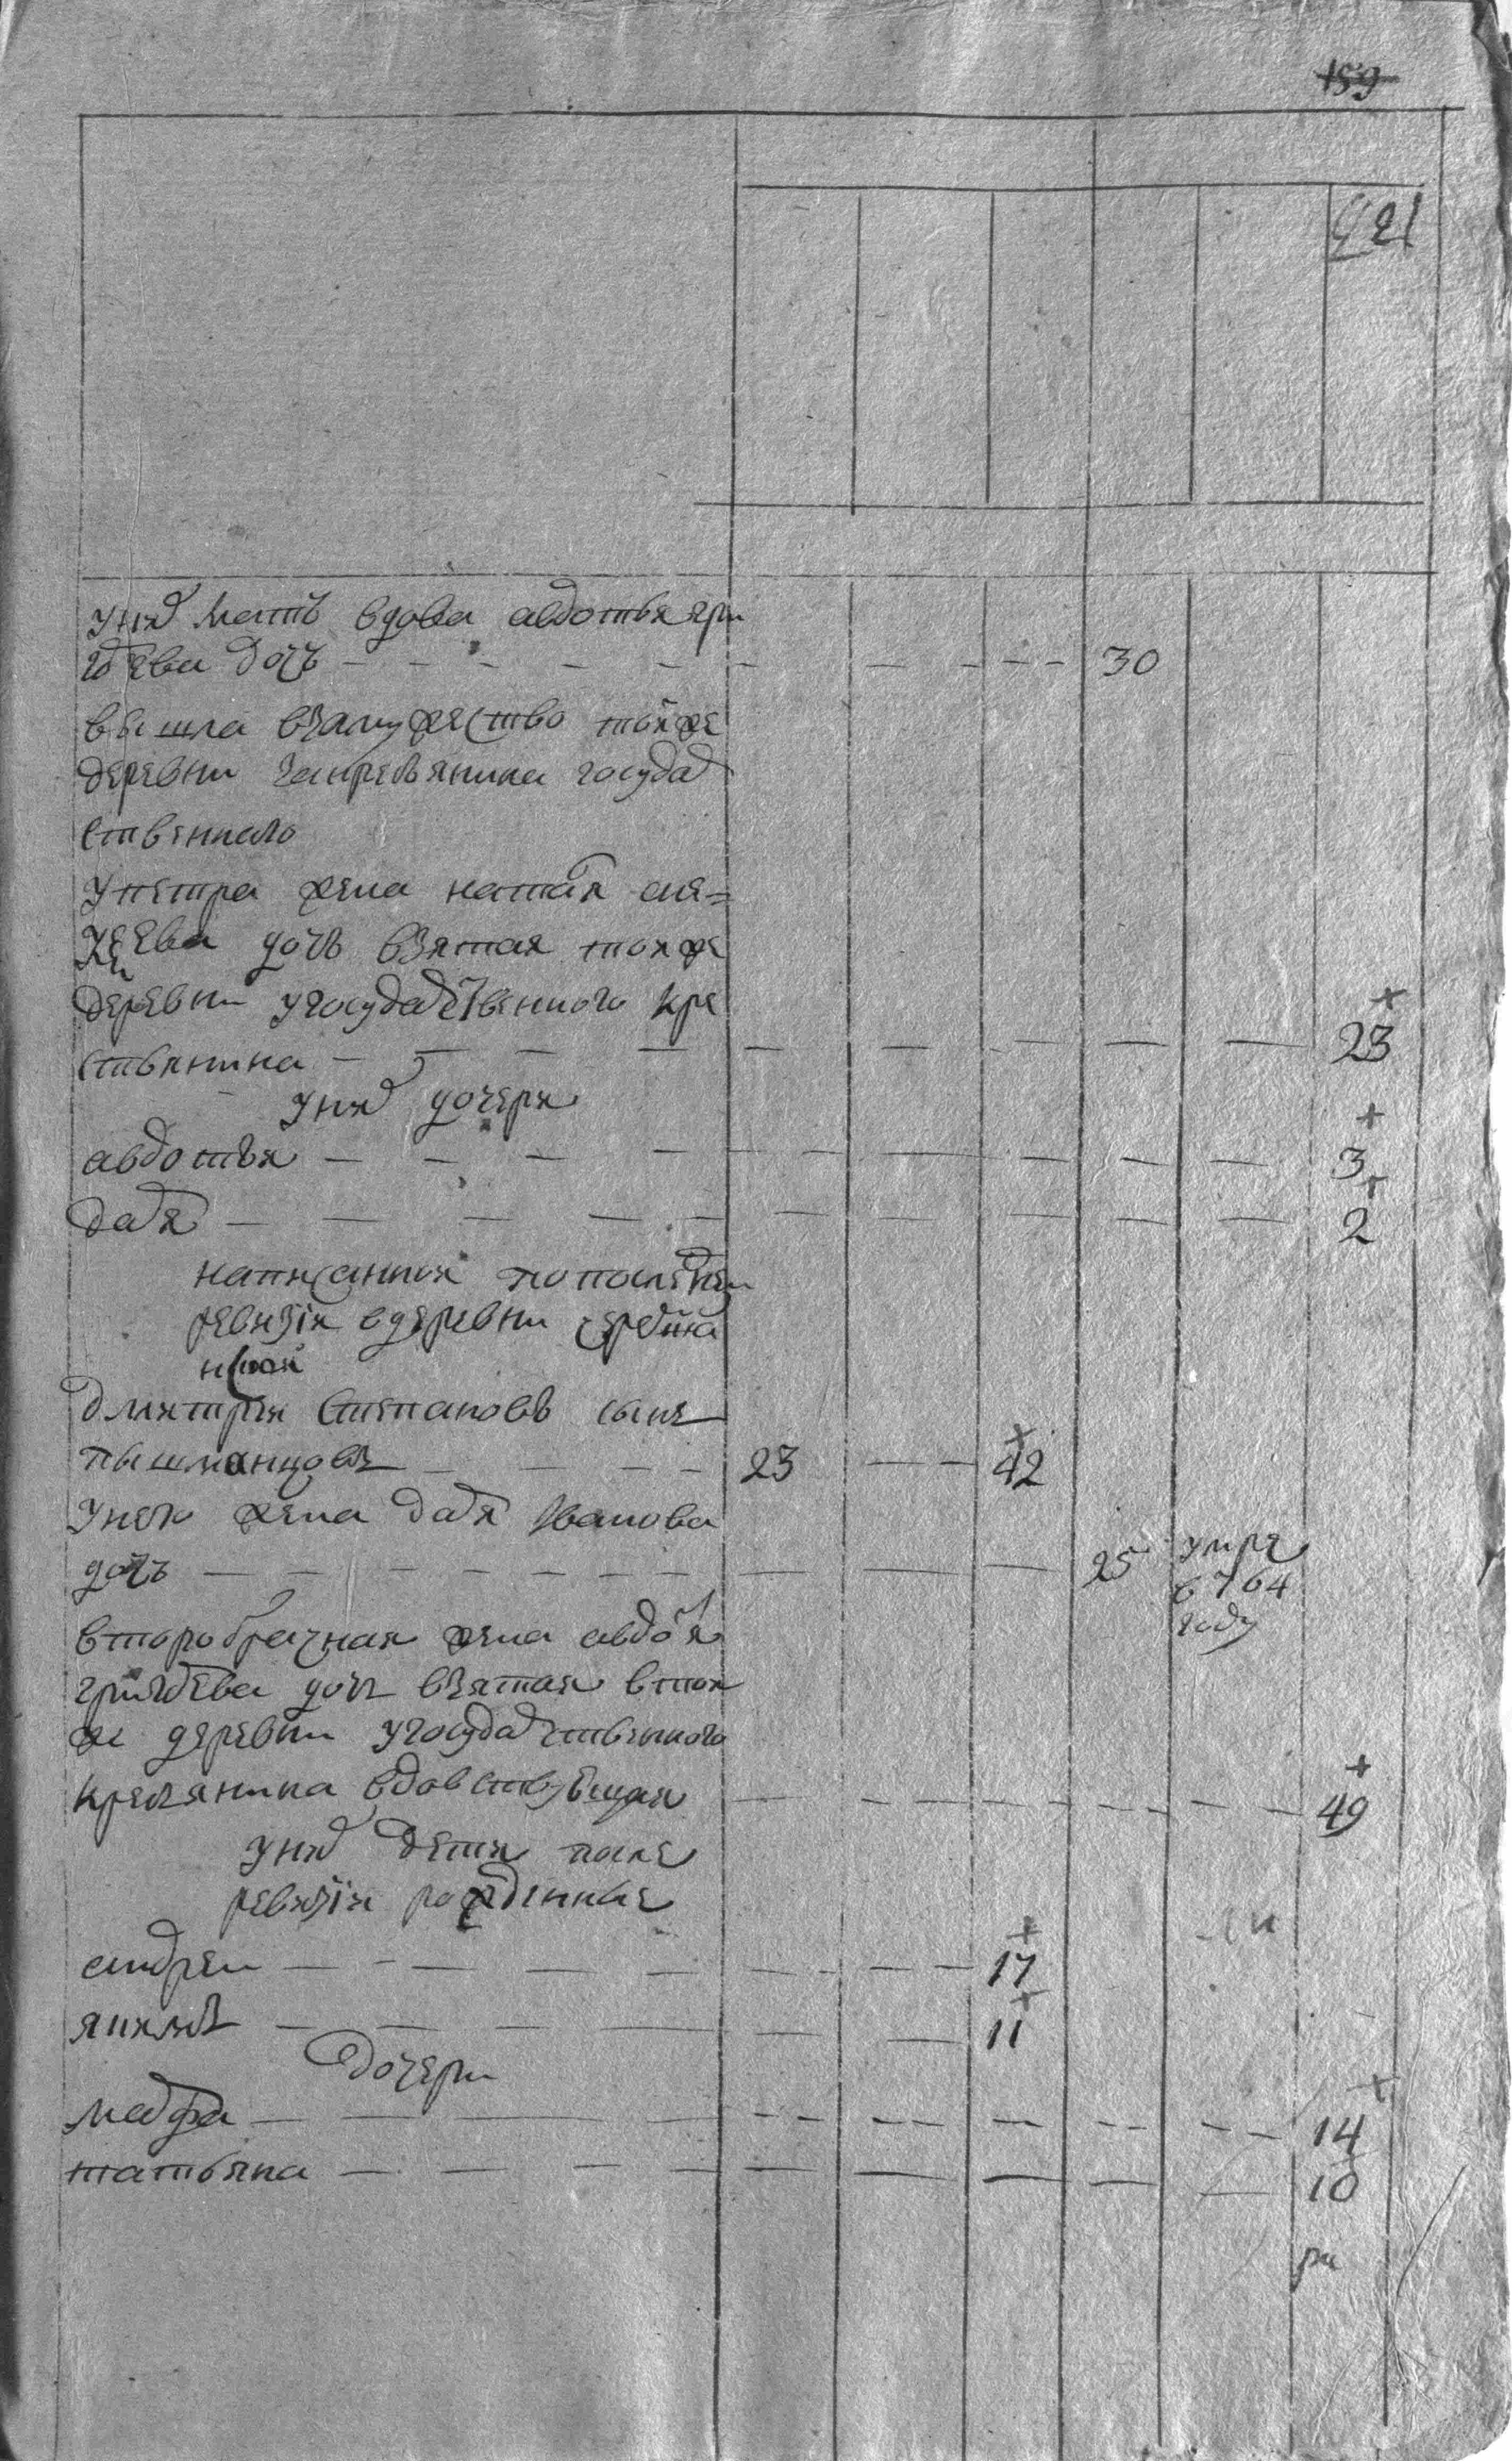 159
у них мать вдова авдотья гри
горева дочь 30
вышла взамужество тойже
деревни закрестьянина государ
ственнаго
у петра жена наталя але=
ѯеева дочь взятая тояже
деревни у государственного кре
стьянина 23
у них дочеря
авдотья 3
даря 2
написанныя по последней
ревизiи в деревни
дмитрей степановъ сынъ
пышминцовъ 23 42
у него жена даря Iванова
дочь 25 умре
в 764
году
второбрачная жена авдотя
григорева дочь взятая в тои
же деревни у государственного
кресьянина вдовствующая 49
у них дети после
ревизiи рожденные
андреи 17
якимъ 11
дочери
марфа 14
татьяна 10